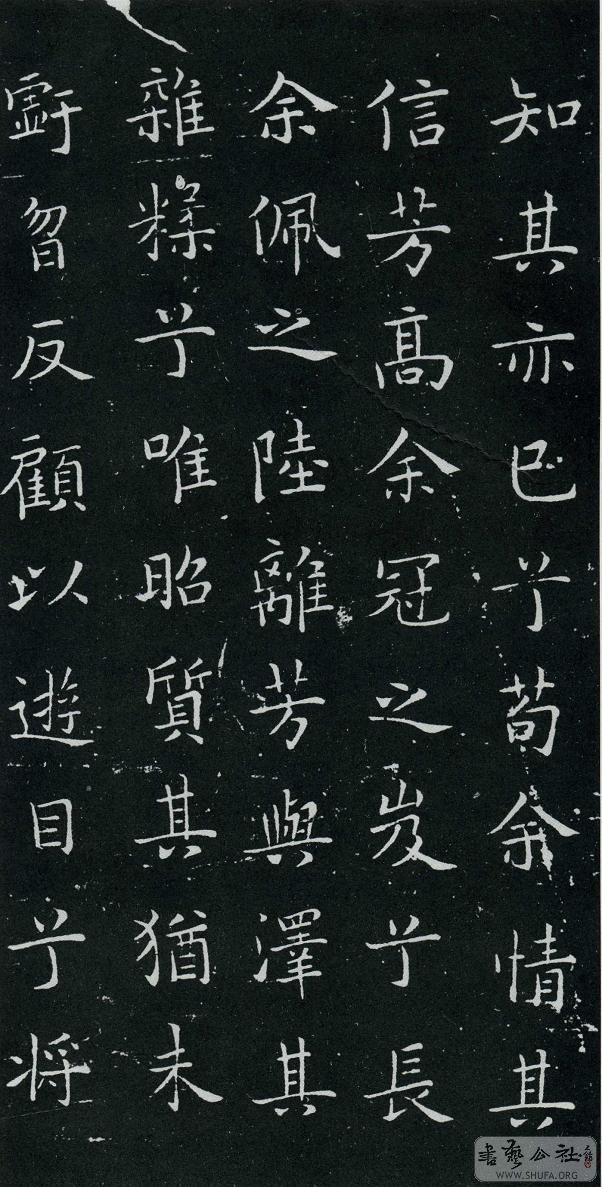 知其亦已兮苟余情其
信芳髙余冠之岌兮長
余佩之陸離芳與澤其
雜糅兮唯昭質其猶未
虧忽反顧以遊目兮将
書藝公社
WWW.SHUFA.ORG